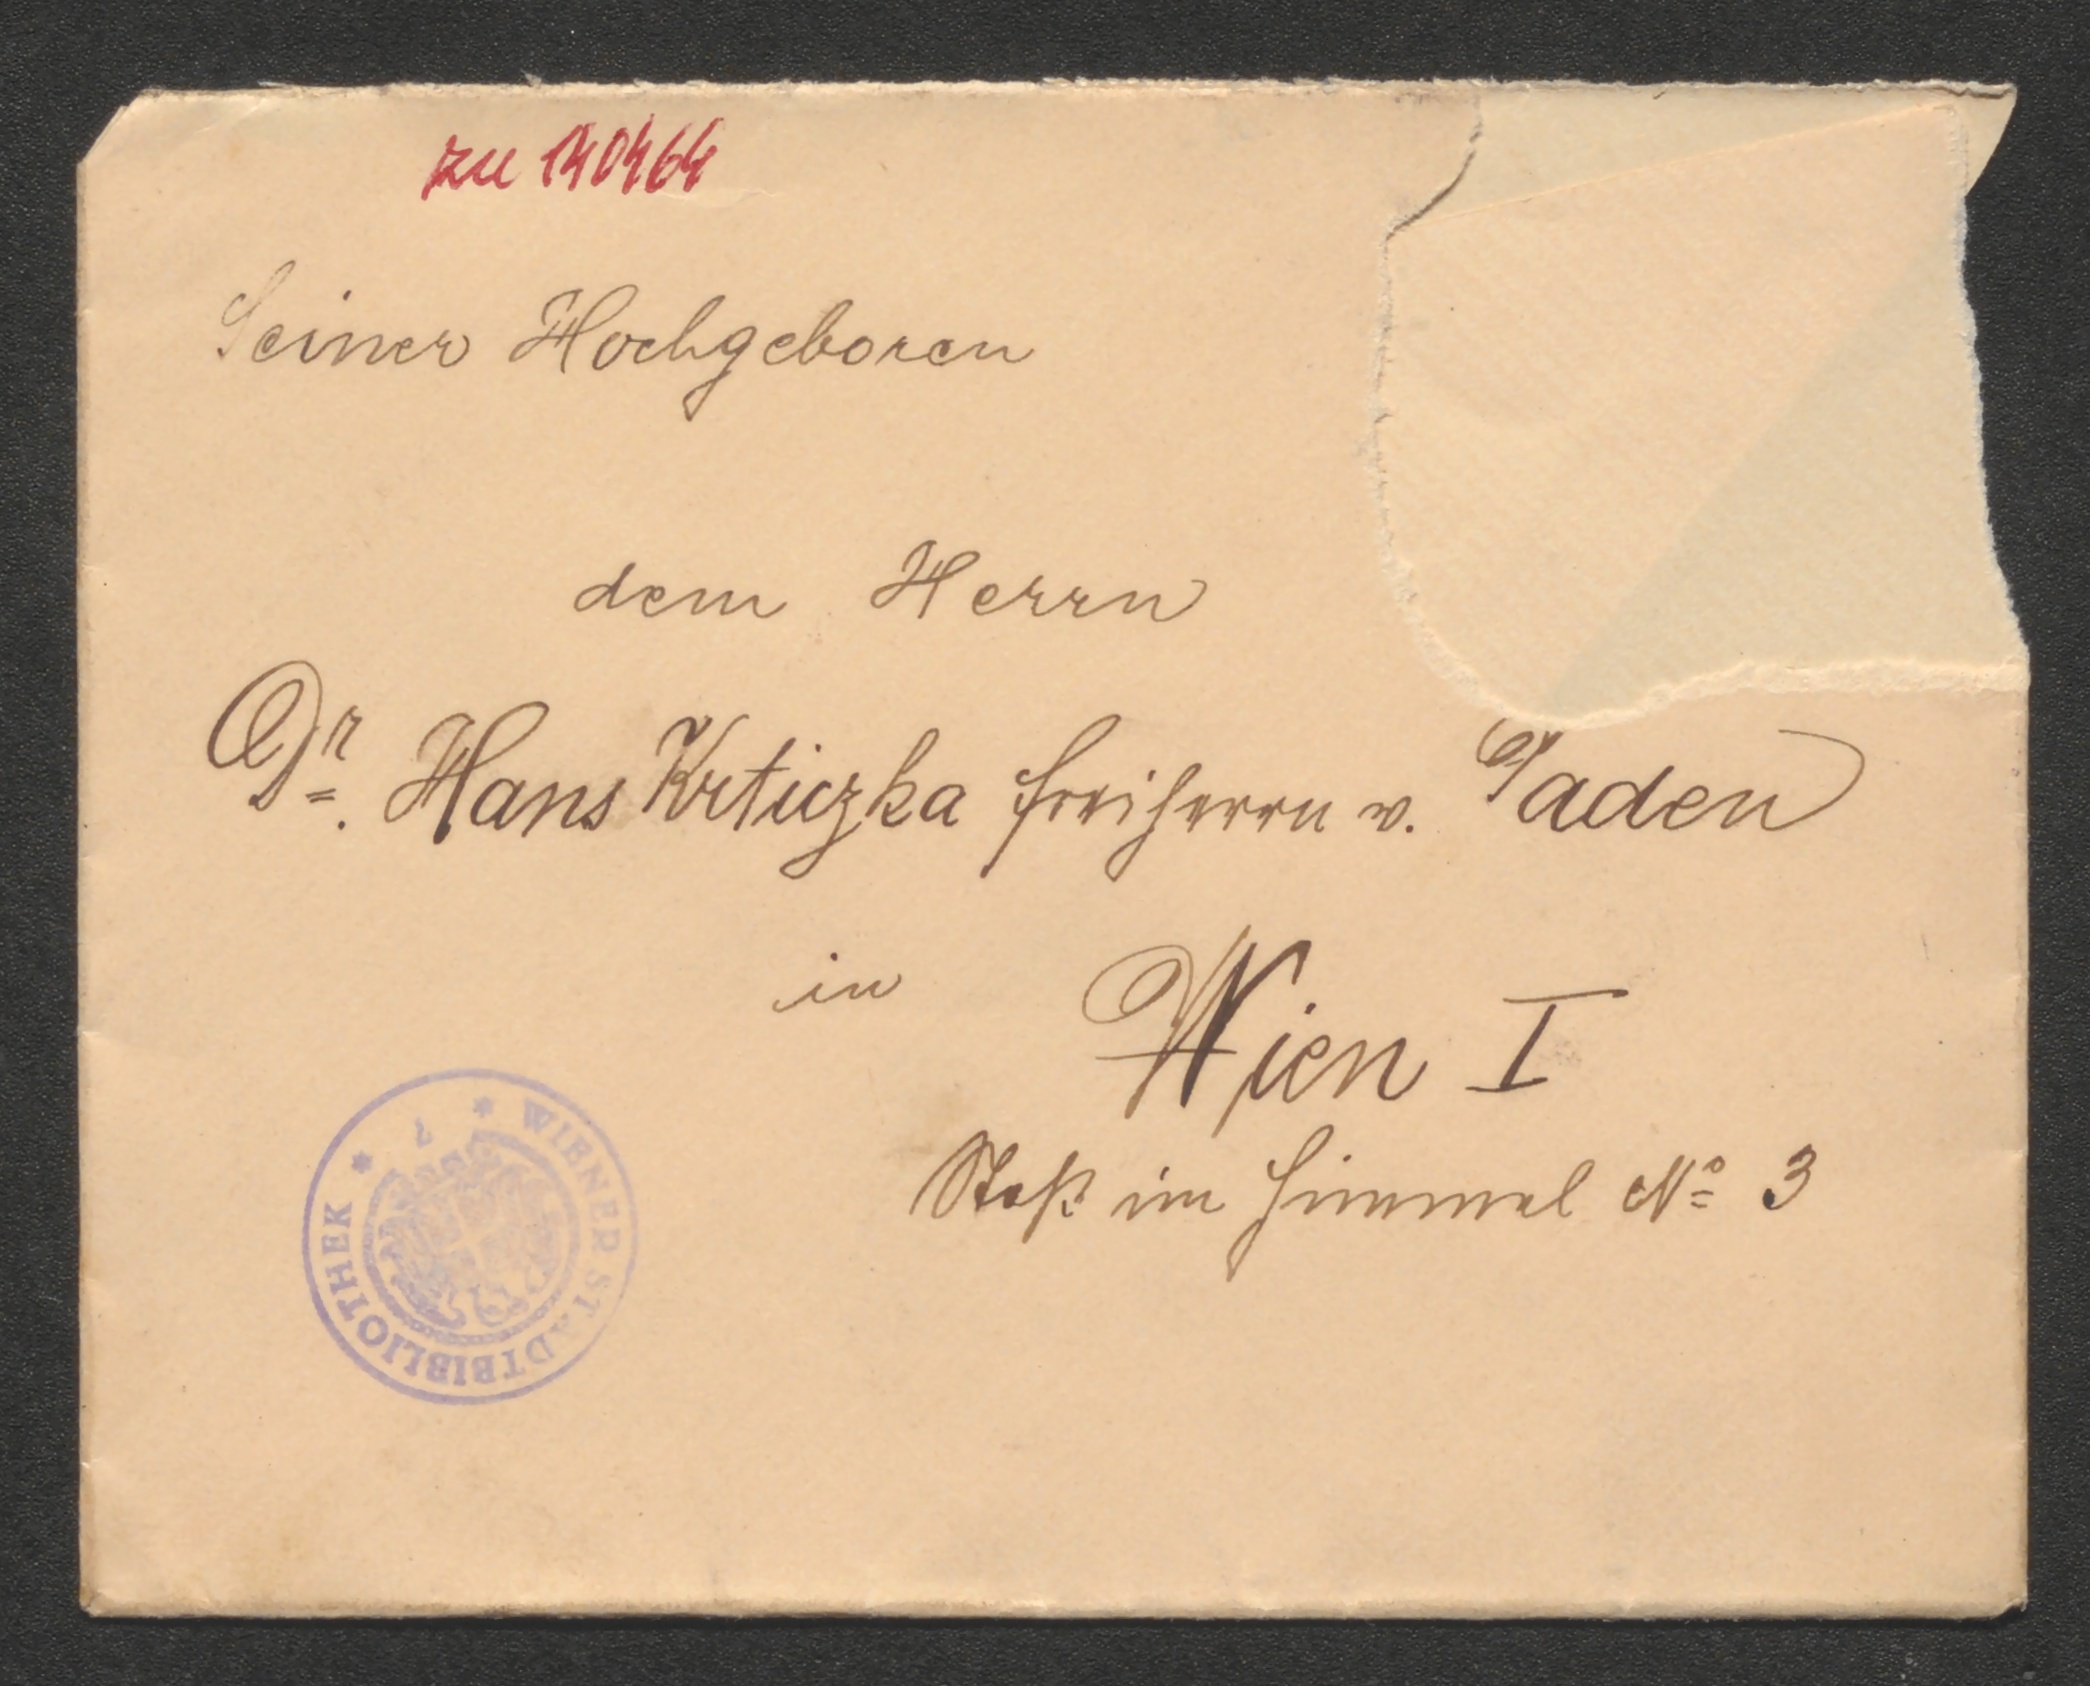 zu 140464
Seiner Hochgeboren
dem Herrn
Dr. Hans Krticzka Freiherrn v. Jaden
in Wien I
Stoß im Himmel No 3
* WIENER STADTBIBLIOTHEK *